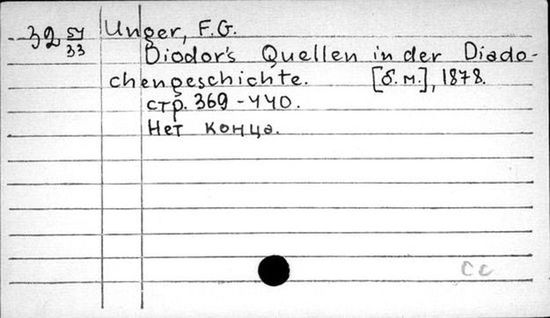 32 51/33 Unger, F.G.
Diodor's Quellen in der Diado-
chengeschichte. [б.м.], 1878.
стр. 369-440.
Нет конца.
cc